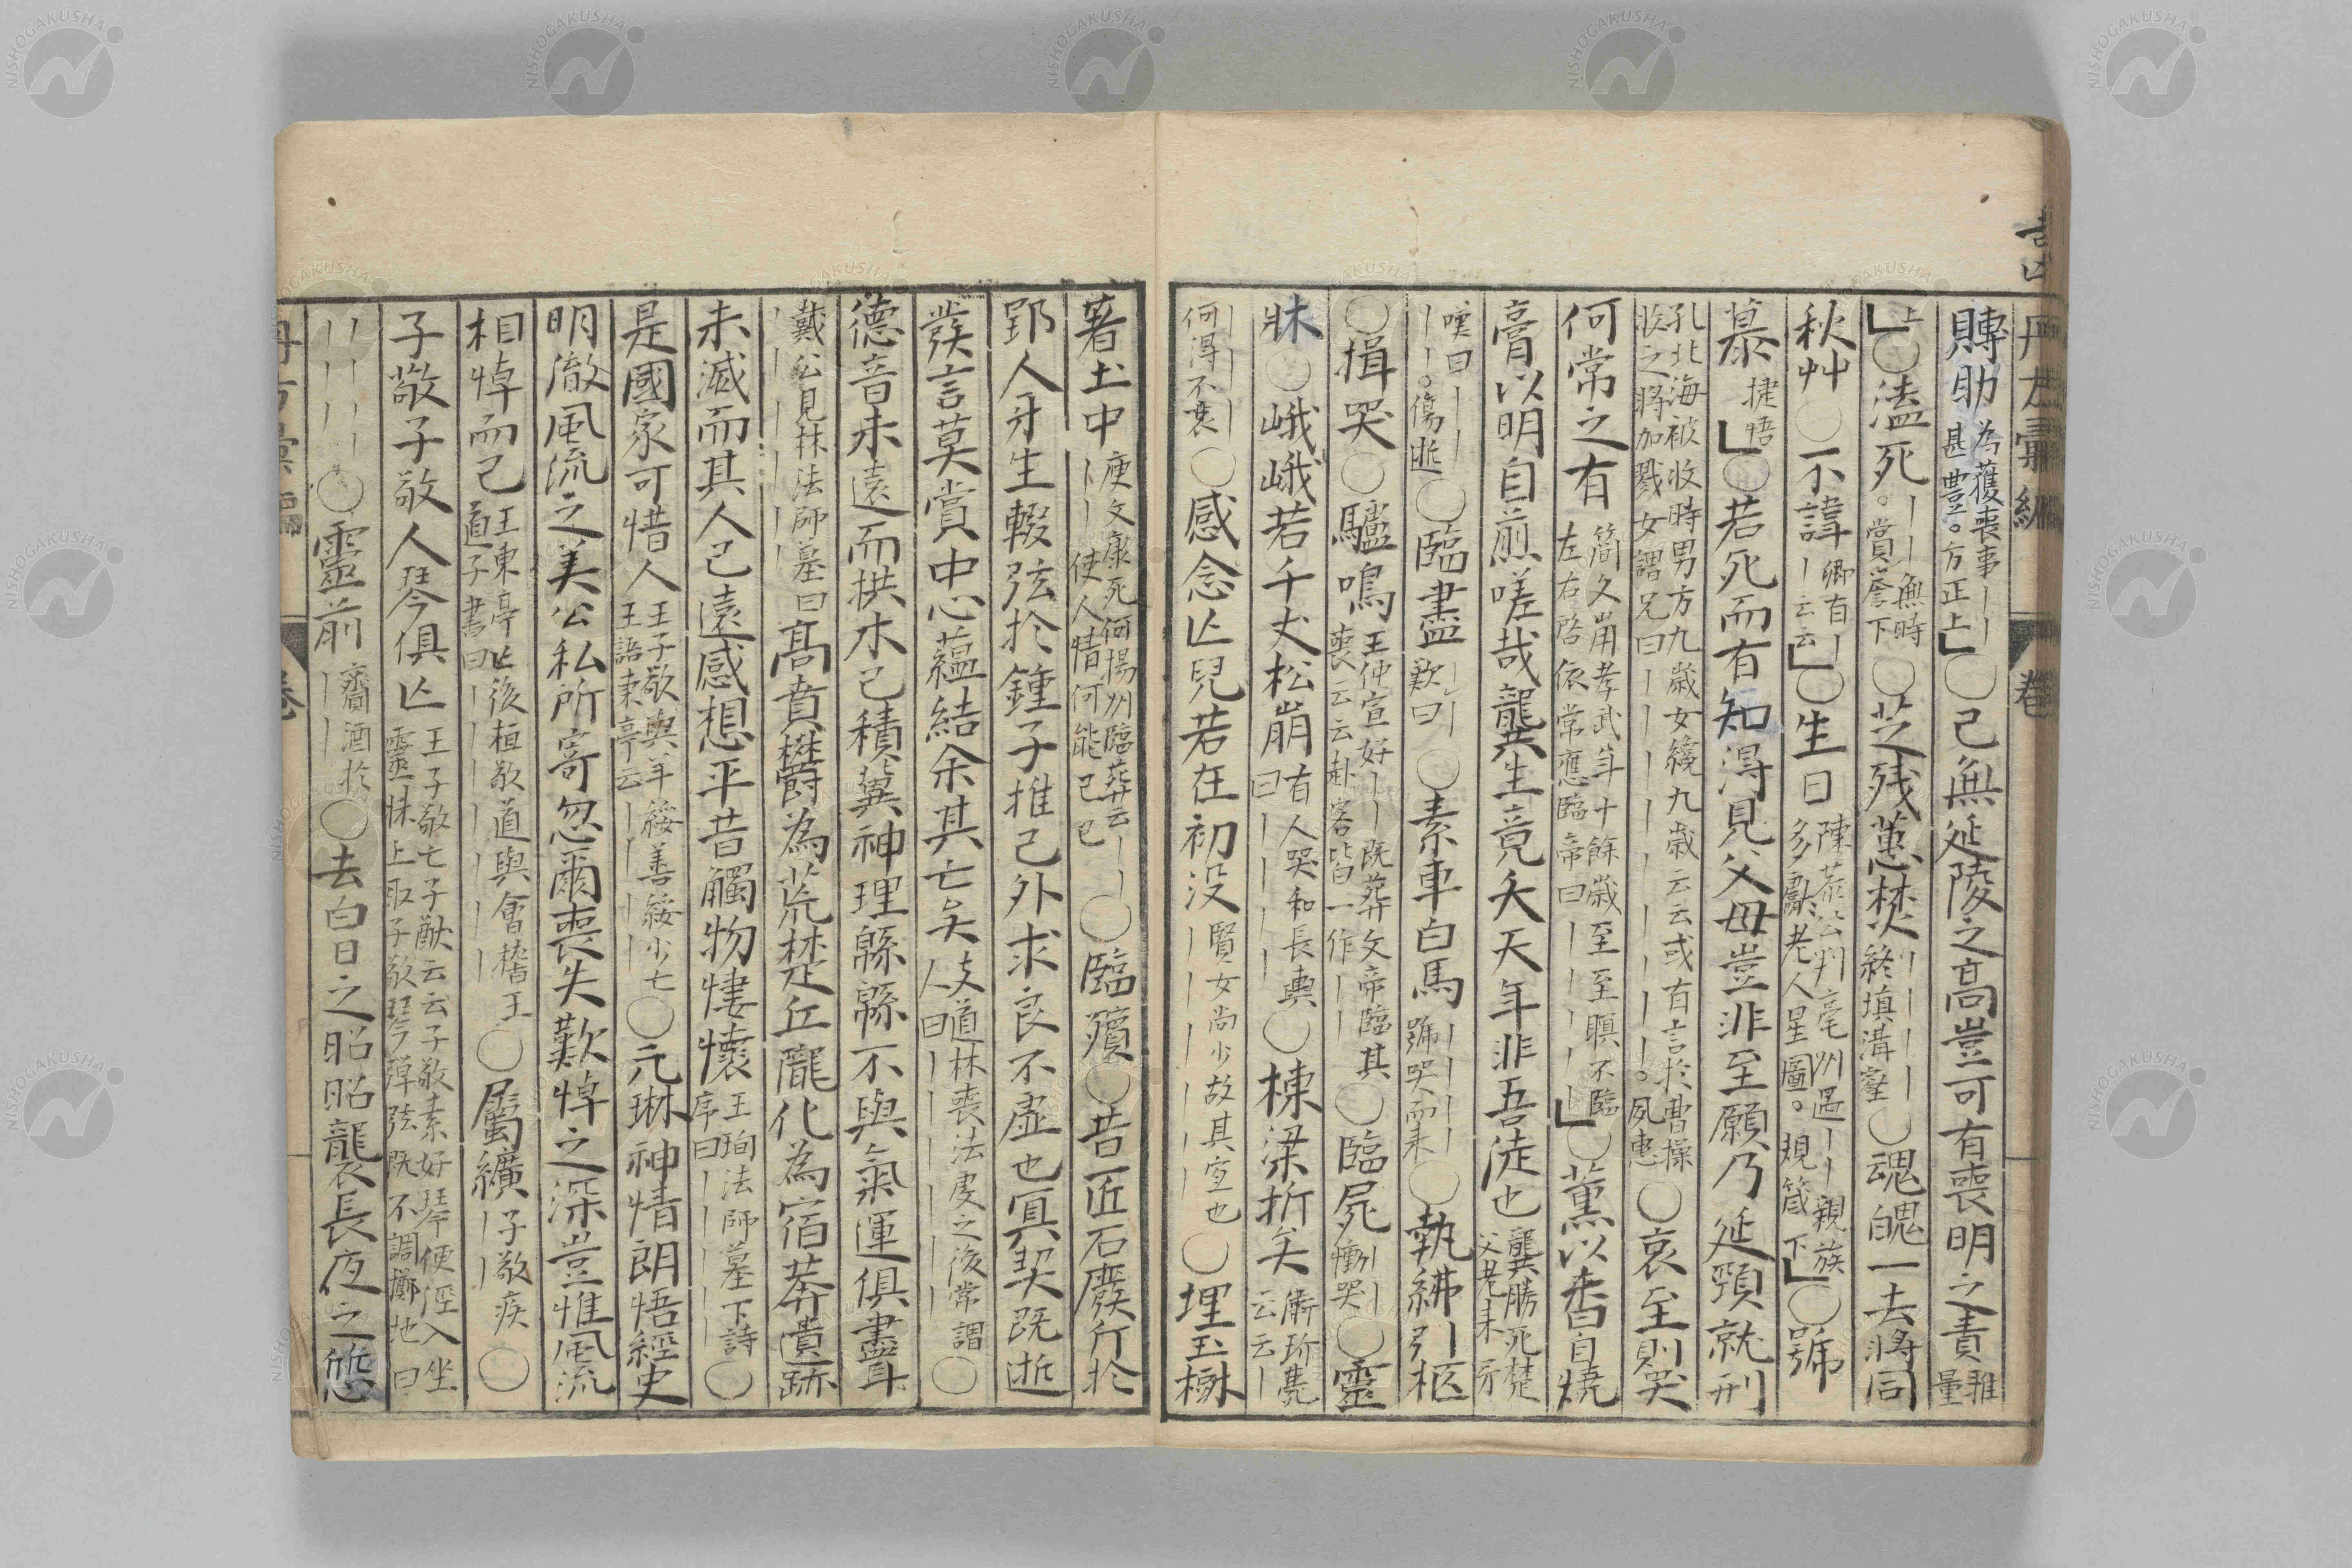 丹方彙編
卷
賻助 為獲喪事｜｜甚豊。方正上」〇已無延陵之高豈可有喪明之責 雅量
上」〇溘死 ｜｜｜無時。賞誉下〇芝残蕙焚 ｜｜｜｜終填溝壑〇魂魄一去將同
秋艸〇不諱 卿有｜｜云云」〇生日 陳恭公判亳州遇｜｜親族多獻老人星圖。規箴下」〇號
慕 捷悟」〇若死而有知得見父母豈非至願乃延頸就刑
孔北海被收時男方九歳女纔九歳云云或有言於曹操收之將加戮女謂兄曰｜｜｜｜｜｜｜｜。夙惠〇哀至則哭
何常之有 簡文崩孝武年十餘歳至至瞑不臨左右啓依常應臨帝曰｜｜｜｜｜」〇薫以香自燒
膏以明自煎嗟哉龔生竟夭天年非吾徒也 龔勝死楚父老来弔
嘆曰｜｜｜｜｜。傷逝〇臨盡 ｜｜歎曰〇素車白馬 ｜｜｜｜號哭而来〇執紼 ｜｜引柩
〇揖哭〇驢鳴 王仲宣好｜｜既葬文帝臨其喪云云赴客皆一作｜｜〇臨屍 ｜｜慟哭〇靈
牀〇峨峨若千丈松崩 有人哭和長輿曰｜｜｜｜｜｜〇棟梁折矣 衛玠薨云云｜
｜｜｜｜何得不哀〇感念亡兒若在初没 賢女尚少故其宜也｜｜｜｜｜｜｜｜〇埋玉樹
著土中 庾文康死何揚州臨葬云｜｜｜｜｜使人情何能已已〇臨殯〇昔匠石廢斤於
郢人牙生輟弦於鍾子推己外求良不虚也冥契既逝
發言莫賞中心蘊結余其亡矣 支道林喪法虔之後常謂人曰｜｜｜｜｜｜〇
德音未遠而拱木已積冀神理緜緜不與氣運俱盡耳
戴公見林法師墓曰｜｜｜｜｜｜高賁欝為荒楚丘隴化為宿莽遺跡
未滅而其人已遠感想平昔觸物悽懷 王珣法師墓下詩序曰｜｜｜｜｜〇
是國家可惜人 王子敬與羊綏善綏少亡王語東亭云｜｜｜｜｜〇元琳神情朗悟經史
明徹風流之美公私所寄忽爾喪失歎悼之深豈惟風流
相悼而已 王東亭亡後桓敬道與會稽王道子書曰｜｜｜｜｜｜｜｜〇屬纊 ｜｜子敬疾〇
子敬子敬人琴俱亡 王子敬亡子猷云云子敬素好琴便徑入坐靈牀上取子敬琴彈弦既不調擲地曰
｜｜｜｜｜｜｜｜〇靈前 齎酒於｜｜〇去白日之昭昭襲長夜之悠